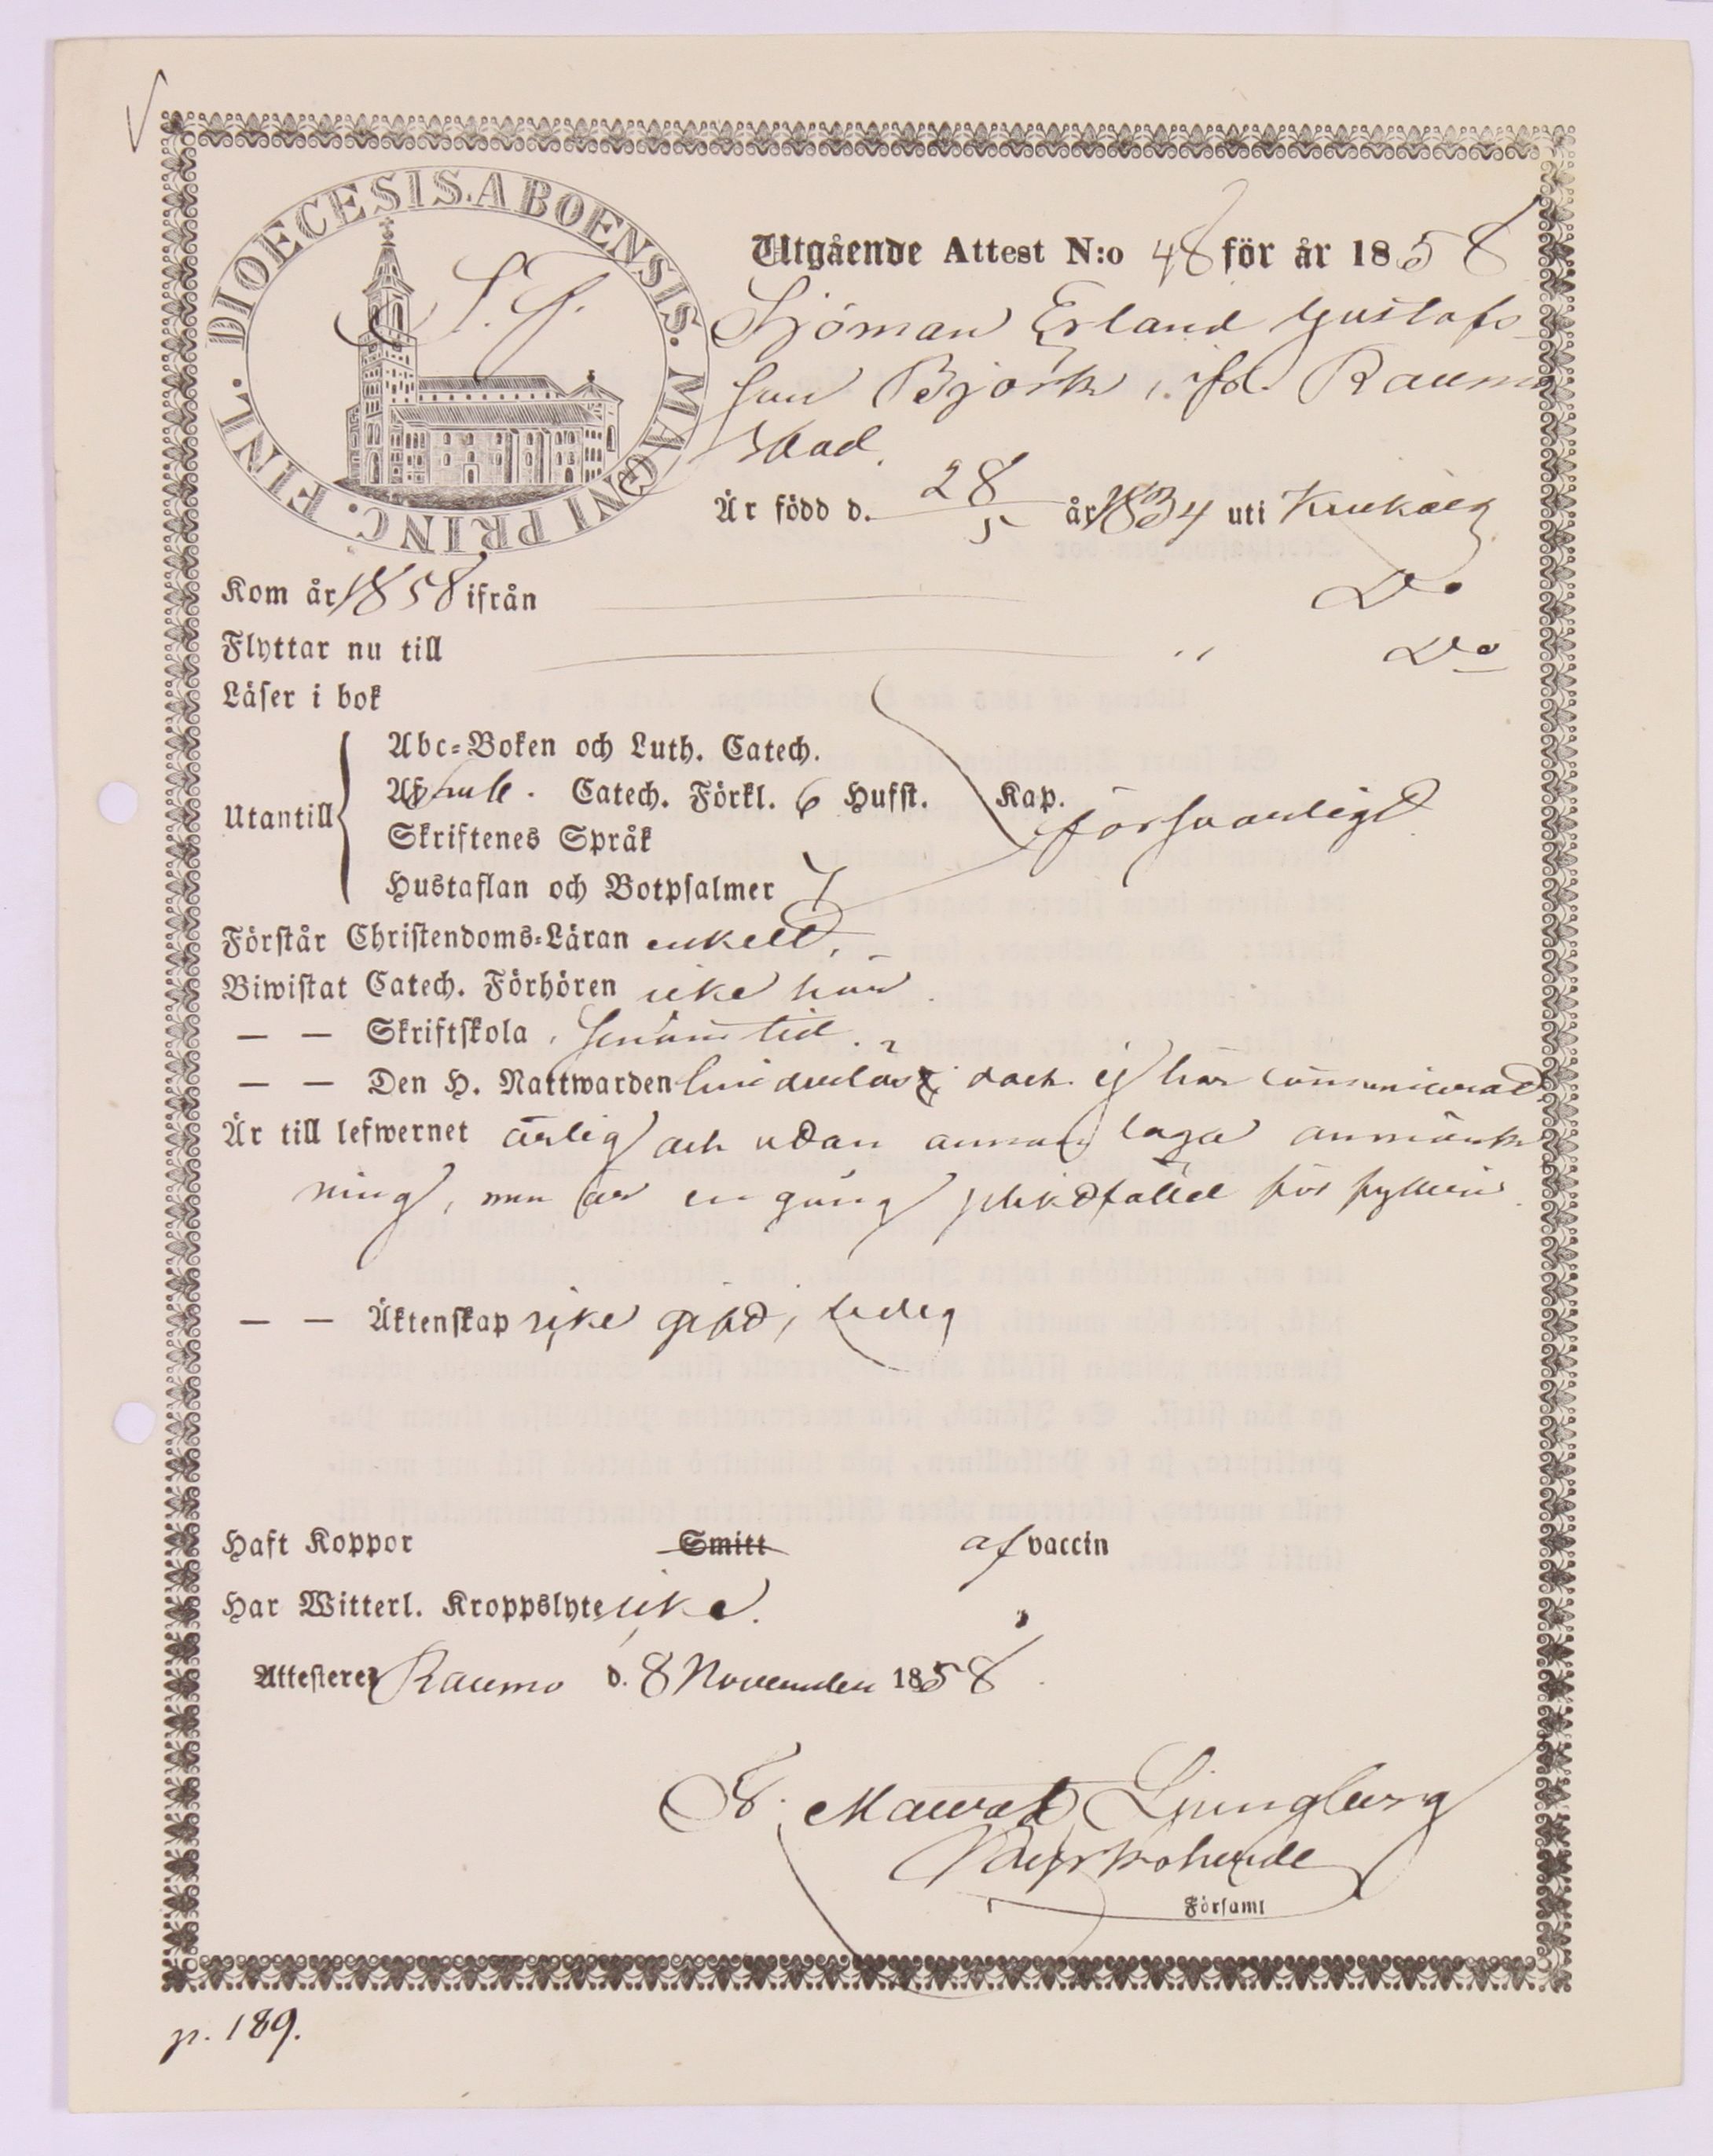 DIOECESIS. ABOENSIS. MAGNI PRINC. FINL.
S. J.
Utgående Attest N:o 48 för år 1858
Sjöman Erland Gustafs-
son Björk, ifr. Raumo
stad.
Är född d. 28/5 år 1834 uti
Kom år 1858 ifrån Do
Flyttar nu till " Do
Läser i bok
Utantill
Abc-Boken och Luth. Catech.
Catech. Förkl. 6 Hufst. Kap. försvarligt
Skriftenes Språk
Hustaflan och Botpsalmer 7
Förstår Christendoms-Läran enkelt.
Biwistat Catech. Förhören icke här.
— — Skriftskola, tid.
— — Den H. Nattwarden hinderlös; dock ej här communicerat
Är till lefwernet ärlig och utan annan laga anmärk
ning, men är en gång pliktfälld för fylleri.
— — Äktenskap icke gift, ledig
Haft Koppor Smitt af vaccin
Har Witterl. Kroppslyte icke.
Attesterer Raumo d. 8 November 1858.
Fr. Maur. Ljungberg
Kyrkoherde
Församl
p. 189.